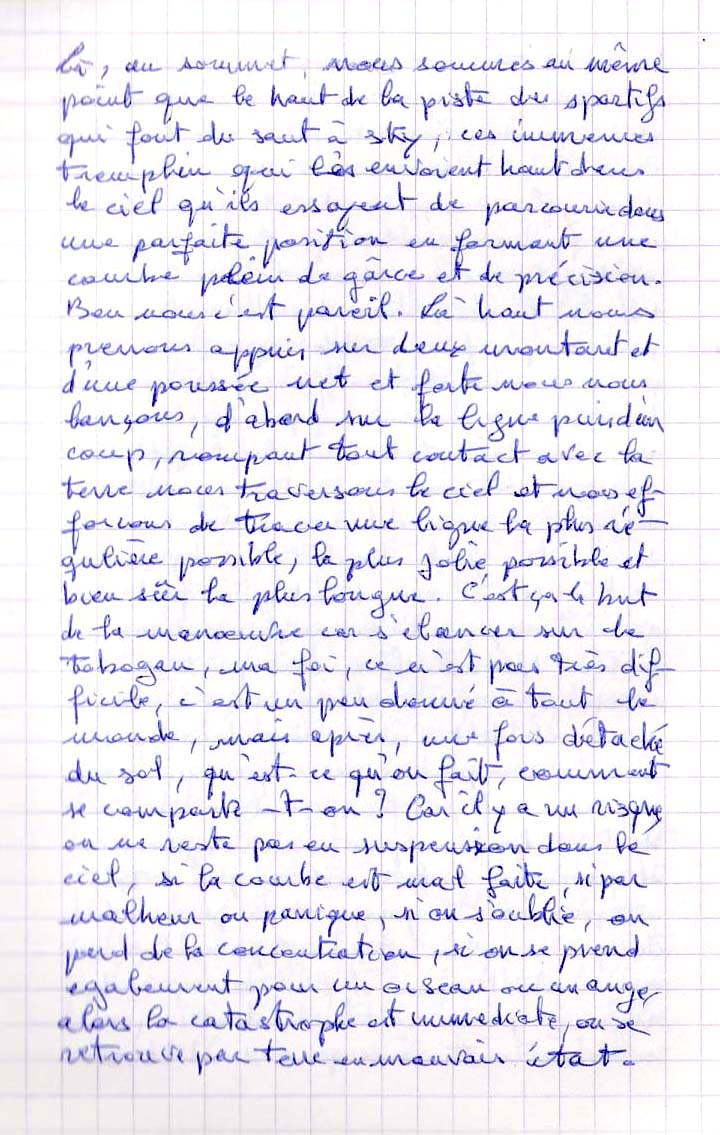 Là, au sommet, nous sommes au même
point que le haut de la piste des sportifs
qui font du saut à sky, ces immenses
tremplin qui les envoient haut dans
le ciel qu'ils essayent de parcourir dans
une parfaite position en formant une
courbe plein de gârce et de précision.
Ben nous c'est pareil. Là haut nous
prenons appuis sur deux montant et
d'une poussée net et forte nous nous
lançons, d'abord sur la ligne puis d'un
coup, rompant tout contact avec la
terre nous traversons le ciel et nous ef-
forcons de tracer une ligne la plus ré-
gulière possible, la plus jolie possible et
bien sûr la plus longue. C'est ça le but
de la manoeuvre car s'élancer sur le
tobogan, ma foi, ce n'est pas très dif-
ficile, c'est un peu donné à tout le
monde, mais après, une fois détaché
du sol, qu'est-ce qu'on fait, comment
se comporte-t-on? Car il y a un risque,
on ne reste pas en suspension dans le
ciel, si la courbe est mal faite, si par
malheur ou panique, si on s'oublie, on
perd de la concentration, si on se prend
egalement pour un oiseau ou un ange,
alors la catastrophe est immediate, on se
retrouve par terre en mauvais état.